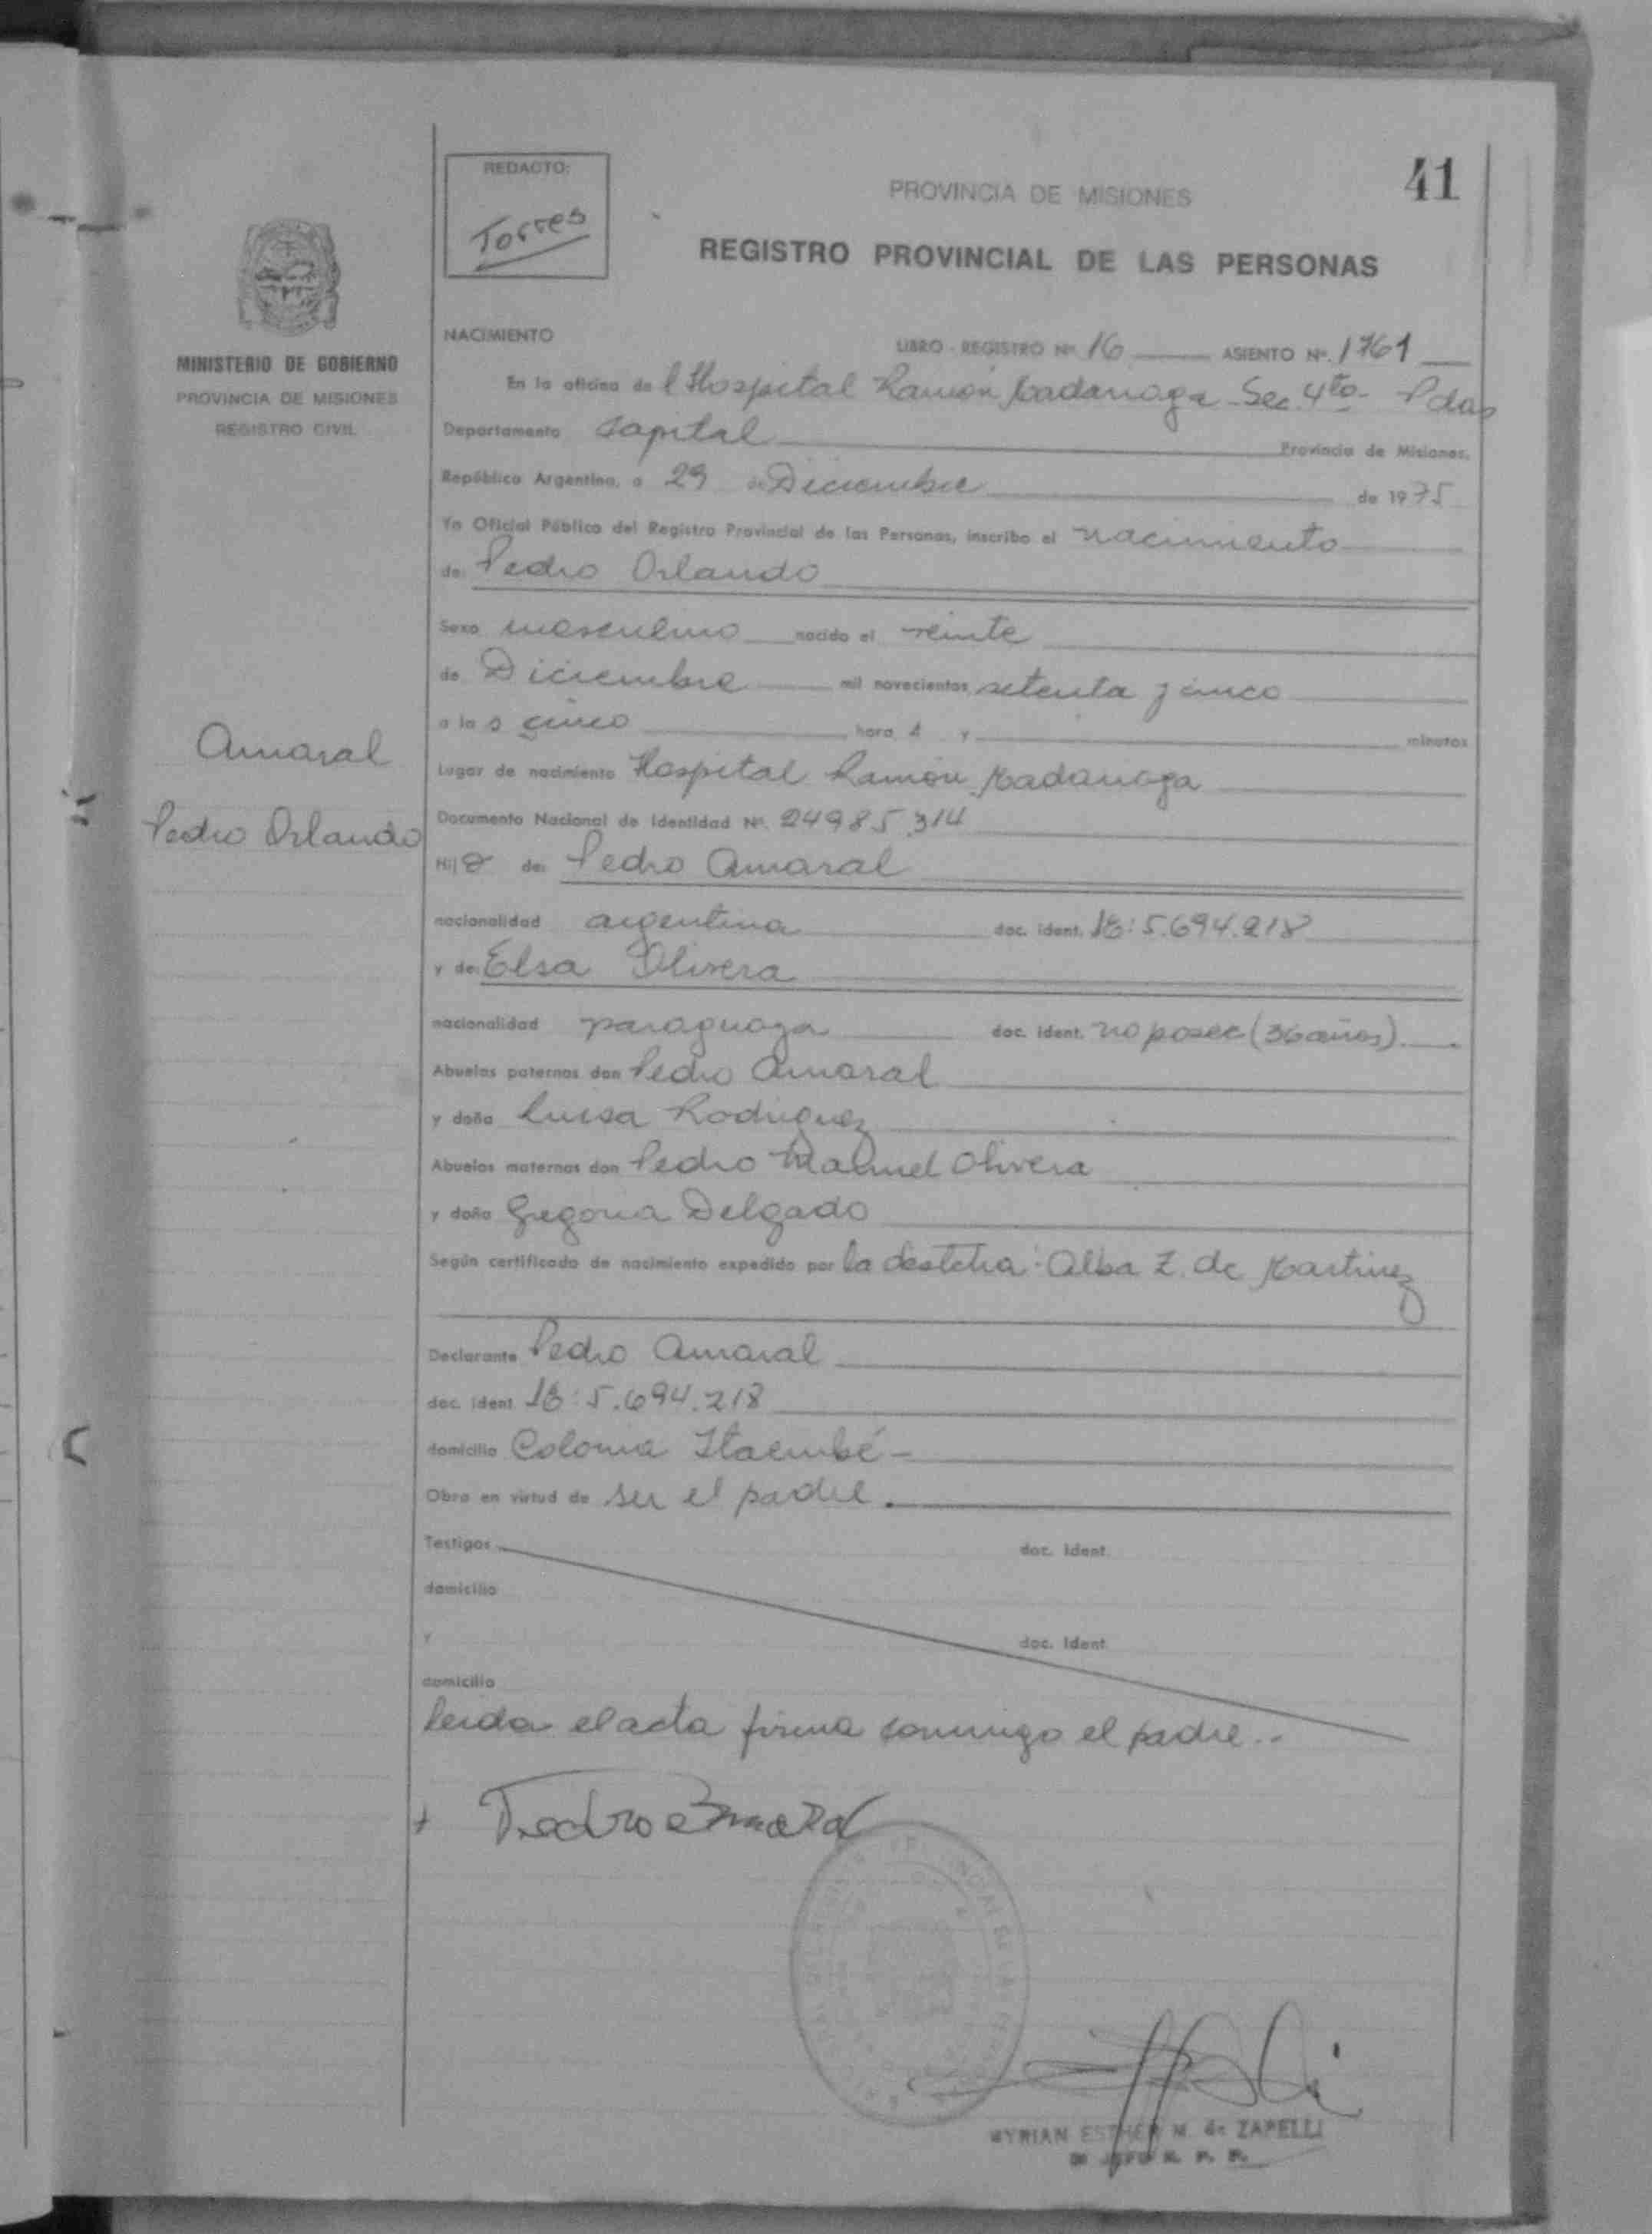 41
REDACTO:
Torres
PROVINCIA DE MISIONES
REGISTRO PROVINCIAL DE LAS PERSONAS
MINISTERIO DE GOBIERNO
PROVINCIA DE MISIONES
REGISTRO CIVIL
Amaral
Pedro Orlando
NACIMIENTO
LIBRO - REGISTRO Nº 16 ASIENTO Nº 1761
En la oficina de l Hospital Ramón Madariaga - Sec. 4to - Pdas
Departamento Capital Provincia de Misiones,
República Argentina, a 29 de Diciembre de 1975
Yo Oficial Público del Registro Provincial de las Personas, inscribo el nacimiento
de: Pedro Orlando
Sexo masculino nacido el veinte
de Diciembre mil novecientos setenta y cinco
a las cinco hora s y minutos
Lugar de nacimiento Hospital Ramón Madariaga
Documento Nacional de Identidad Nº 24985314
Hijo de: Pedro Amaral
nacionalidad argentina doc. ident. 5.694.218
y de: Elsa Olivera
nacionalidad paraguaya doc. ident. no posee (36 años).
Abuelos paternos don Pedro Amaral
y doña Luisa Rodriguez
Abuelos maternos don Pedro Manuel Olivera
y doña Gregoria Delgado
Según certificado de nacimiento expedido por la Alba Z. de Martinez
Declarante Pedro Amaral
doc. ident 5.694.218
domicilio Colonia Itaembé -
Obra en virtud de ser el padre.
Testigos doc. ident.
domicilio
y doc. ident
domicilio
leida el acta firma conmigo el padre..
Pedro Amaral
MYRIAN ESTHER M. de ZAPELLI